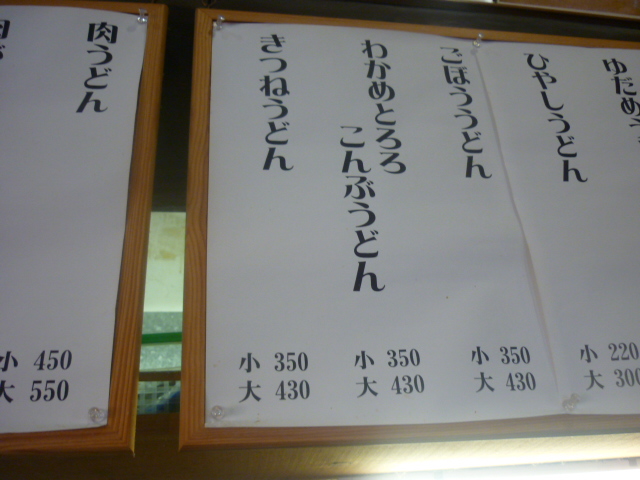 ひやしうどん
小 220
大 300
ごぼううどん
小 350
大 430
わかめとろろ
こんぶうどん
小 350
大 430
きつねうどん
小 350
大 430
肉うどん
小 450
大 550